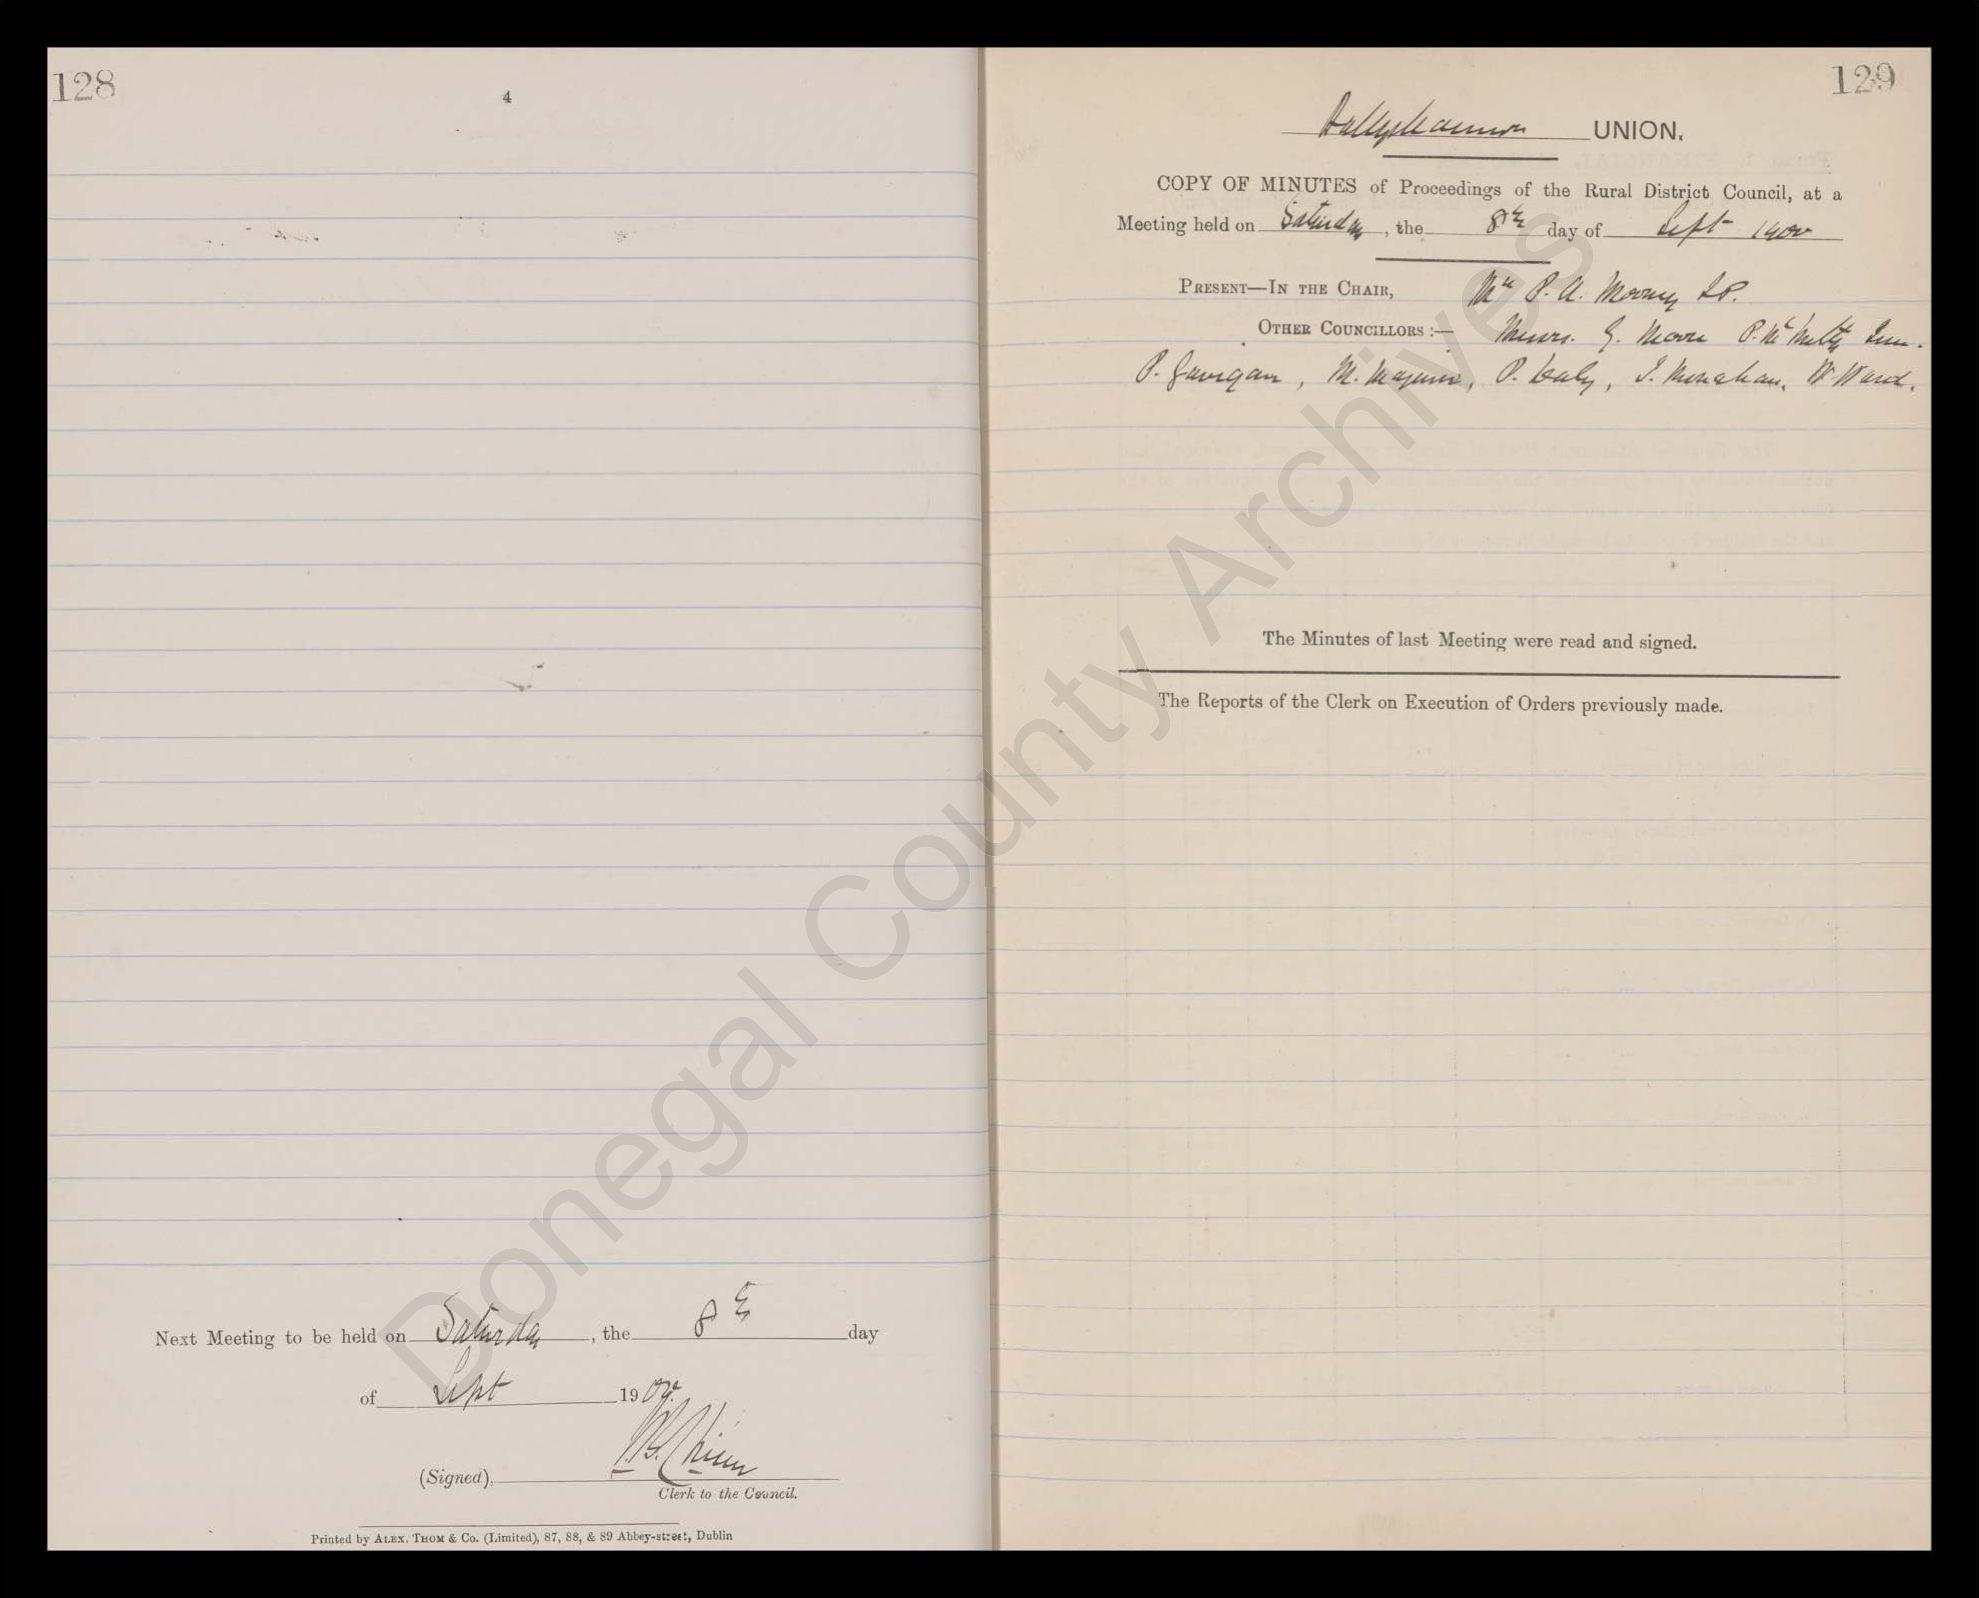 128
4
Next Meeting to be held on Saturday, the 8th day
of Sept 1900.
(Signed),
Clerk to the Council.
Printed by ALEX. THOM & Co. (Limited), 87, 88, & 89 Abbey-street, Dublin
129
Ballyshannon UNION.
COPY OF MINUTES of Proceedings of the Rural District Council, at a
Meeting held on Saturday, the 8th day of Sept 1900
PRESENT—IN THE CHAIR, Mr P. A. Mooney J.P.
OTHER COUNCILLORS:— Messrs. G. Moore P. McNulty
P. Gavigan, M. Maguire, P. Healy, J. Monahan, W. Ward.
The Minutes of last Meeting were read and signed.
The Reports of the Clerk on Execution of Orders previously made.
Donegal County Archives